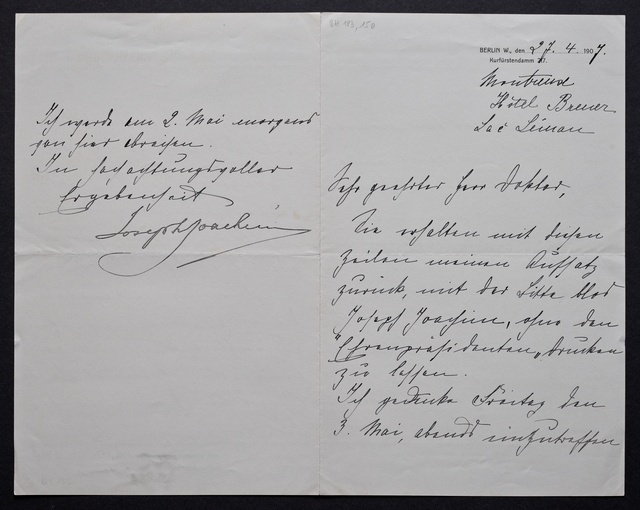 BERLIN W., den 27. 4. 1907.
Kurfürstendamm 217.
Montreux
Hôtel Breuer
Lac Léman
Sehr geehrter Herr Doktor,
Sie erhalten mit diesen
Zeilen meinen Aufsatz
zurück, mit der Bitte blos
Joseph Joachim, ohne den
"Ehrenpräsidenten" drucken
zu lassen.
Ich gedenke Freitag den
3. Mai, abends einzutreffen
Ich werde am 2. Mai morgens
von hier abreisen.
In hochachtungsvoller
Ergebenheit
Joseph Joachim